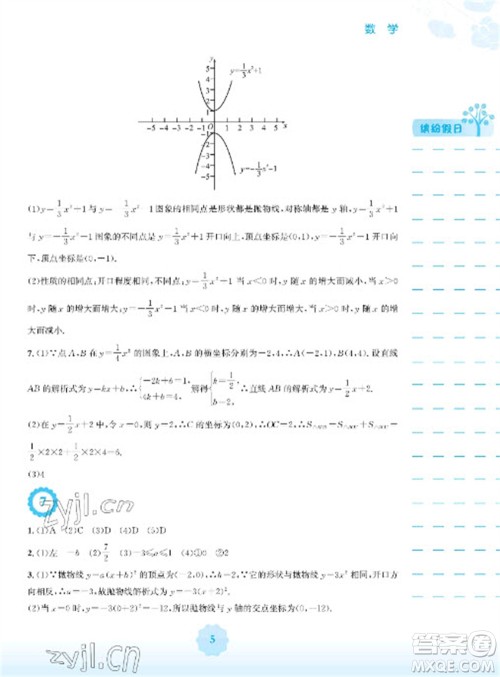 数 学
缤纷假日
y
5
4
3
2
1
y=1/3x²+1
-5 -4 -3 -2 -1 0 1 2 3 4 5 x
-1
-2
-3
-4
-5
y=-1/3x²-1
(1)y=1/3x²+1与y=-1/3x²-1图象的相同点是形状都是抛物线,对称轴都是y轴,y=1/3x²+1
与y=-1/3x²-1图象的不同点是y=1/3x²+1开口向上,顶点坐标是(0,1),y=-1/3x²-1开口向
下,顶点坐标是(0,-1).
(2)性质的相同点:开口程度相同,不同点:y=1/3x²+1当x<0时,y随x的增大而减小,当x>0
时,y随x的增大而增大,y=-1/3x²-1当x<0时,y随x的增大而增大,当x>0时,y随x的增
大而减小.
7.(1)∵点A,B在y=1/4x²的图象上,A,B的横坐标分别为-2,4,∴A(-2,1),B(4,4).设直线
AB的解析式为y=kx+b,∴{-2k+b=1, 4k+b=4, 解得 b=2, ∴直线AB的解析式为y=1/2x+2.
(2)在y=1/2x+2中,令x=0,则y=2,∴C的坐标为(0,2),∴OC=2,
1/2×2×2+1/2×2×4=6.
(3)4
7
zyjl.cn
1.(1)A (2)C (3)D (4)D
2.(1)左 -6 (2)7/2 (3)-3≤a≤1 (4)①0 ②2
3.(1)∵抛物线y=a(x+b)²的顶点为(-2,0),∴b=2,∵它的形状与抛物线y=3x²相同,但开口方
向相反,∴a=-3,故抛物线解析式为y=-3(x+2)².
(2)当x=0时,y=-3(0+2)²=-12,所以抛物线与y轴的交点坐标为(0,-12).
5
zyjl.cn
作业精灵
MXQE.COM